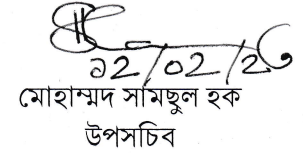 ১২/০২/২৬
মোহাম্মদ সামছুল হক
উপসচিব